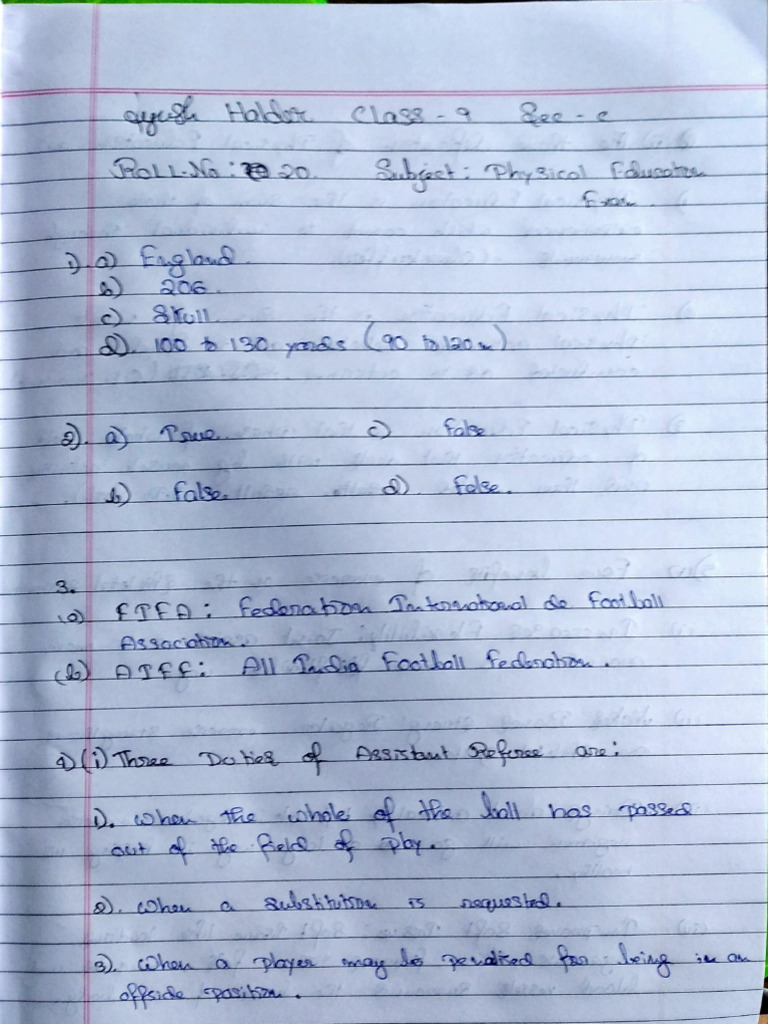 Ayush Halder Class - 9 Sec - c
Roll-No : 20. Subject : Physical Education
Exam.
1). a) England.
b) 206.
c) Skull
d). 100 to 130 yards (90 to 120m)
2). a) True. c) False
b) False. d). False.
3.
(a) FIFA : Federation International de Football
Association.
(b) AIFF : All India Football Federation.
4) (i) Three Duties of Assistant Referee are :
1). When the whole of the ball has passed
out of the field of play.
2). When a substitution is requested.
3). When a player may be penalised for being in an
offside position.